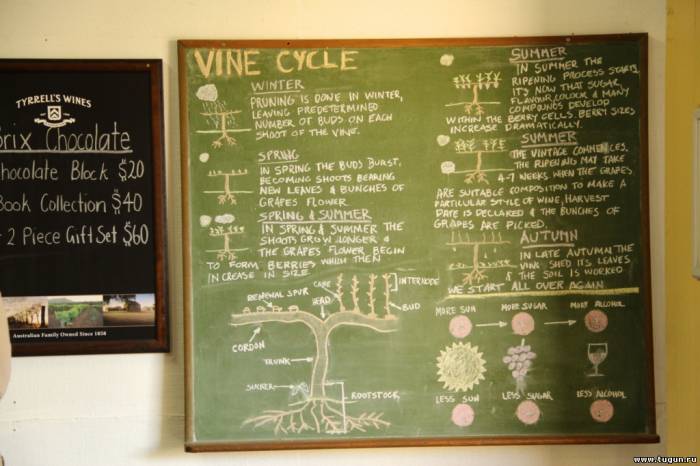 TYRRELL'S WINES
Brix Chocolate
Chocolate Block $20
Book Collection $40
2 Piece Gift Set $60
Australian Family Owned Since 1858
VINE CYCLE
WINTER
PRUNING IS DONE IN WINTER,
LEAVING PREDETERMINED
NUMBER OF BUDS ON EACH
SHOOT OF THE VINE.
SPRING
IN SPRING THE BUDS BURST,
BECOMING SHOOTS BEARING
NEW LEAVES & BUNCHES OF
GRAPES FLOWER
SPRING & SUMMER
IN SPRING & SUMMER THE
SHOOTS GROW LONGER &
THE GRAPES FLOWER BEGIN
TO FORM BERRIES WHICH THEN
INCREASE IN SIZE
RENEWAL SPUR
CANE
HEAD
INTERNODE
BUD
CORDON
TRUNK
SUCKER
ROOTSTOCK
SUMMER
IN SUMMER THE
RIPENING PROCESS STARTS,
IT'S NOW THAT SUGAR,
FLAVOUR, COLOUR & MANY
COMPOUNDS DEVELOP
WITHIN THE BERRY CELLS. BERRY SIZES
INCREASE DRAMATICALLY.
SUMMER
THE VINTAGE COMMENCES.
THE RIPENING MAY TAKE
4-7 WEEKS WHEN THE GRAPES
ARE SUITABLE COMPOSITION TO MAKE A
PARTICULAR STYLE OF WINE, HARVEST
DATE IS DECLARED & THE BUNCHES OF
GRAPES ARE PICKED.
AUTUMN
IN LATE AUTUMN THE
VINE SHED ITS LEAVES
& THE SOIL IS WORKED
WE START ALL OVER AGAIN
MORE SUN
MORE SUGAR
MORE ALCOHOL
LESS SUN
LESS SUGAR
LESS ALCOHOL
www.tugun.ru